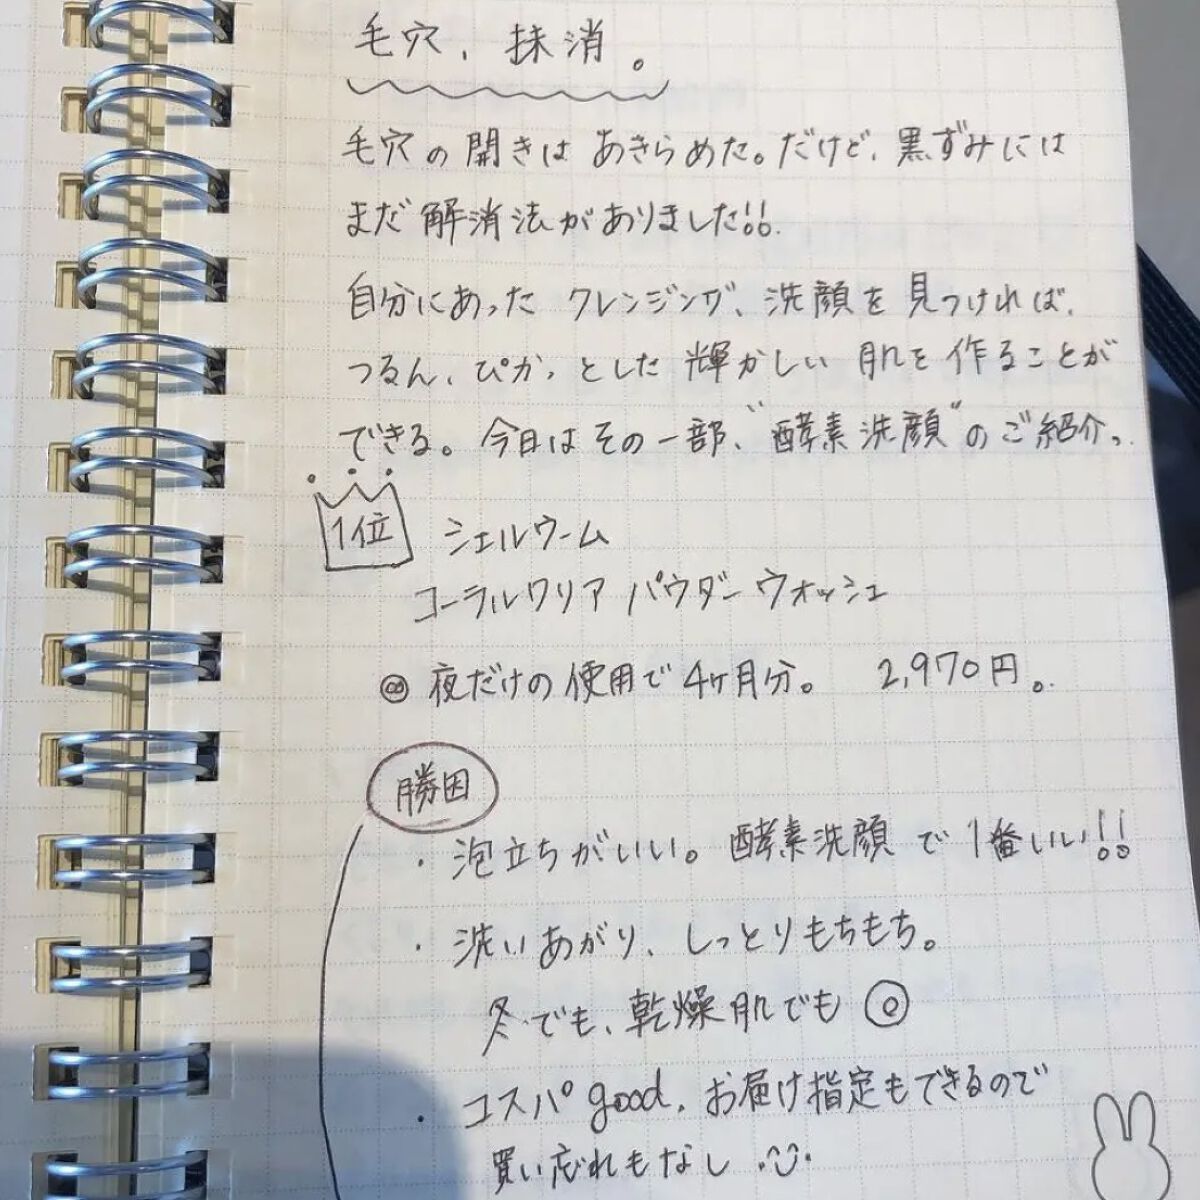 毛穴、抹消。
毛穴の開きはあきらめた。だけど、黒ずみには
まだ解消法がありました!!
自分にあったクレンジング、洗顔を見つければ、
つるん、ぴか、とした輝かしい肌を作ることが
できる。今日はその一部、“酵素洗顔”のご紹介。
1位 シェルウーム
コーラルクリア パウダーウォッシュ
◎夜だけの使用で4ヶ月分。 2,970円。
勝因
・泡立ちがいい。酵素洗顔で1番いい!!
・洗いあがり、しっとりもちもち。
冬でも、乾燥肌でも◎
・コスパgood。お届け指定もできるので
買い忘れもなし